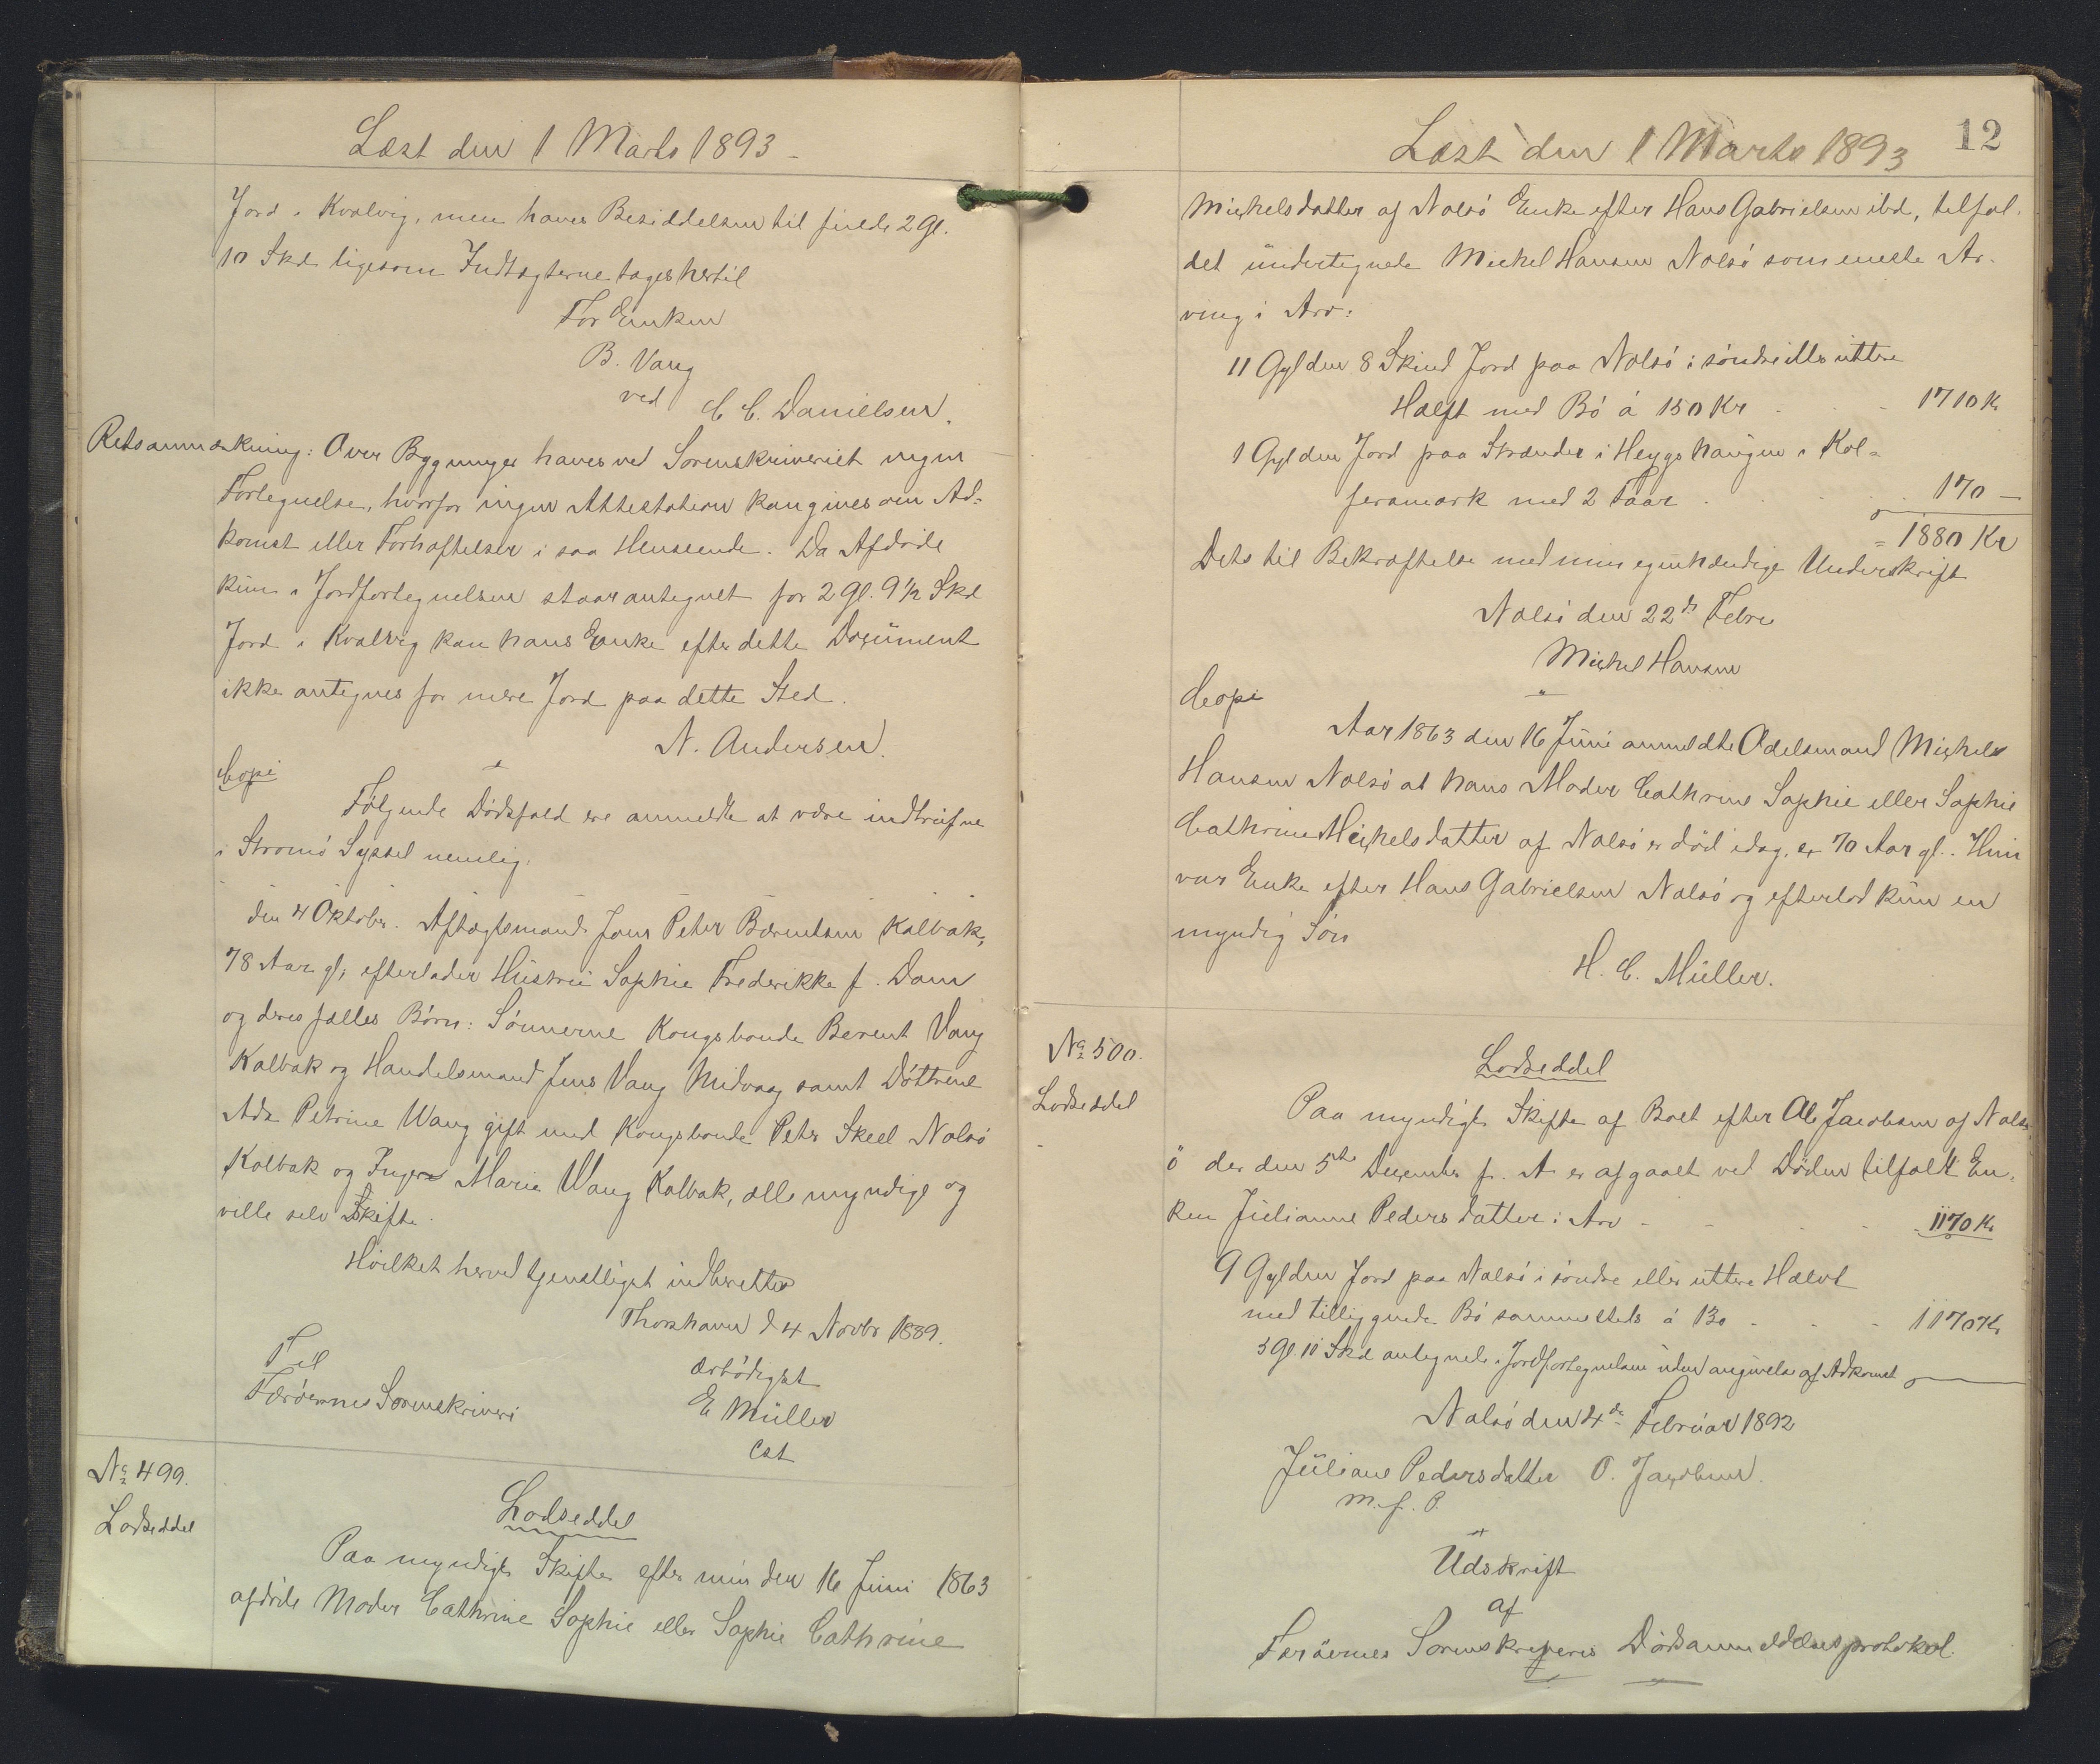 Læst den 1 Marts 1893
Jord i Kvalvig, men haves Besiddelsen til fulde 2 Gl.
10 Skd ligesom Indtægterne tages hertil
For Enken
B. Vang
ved C C. Danielsen.
Retsanmærkning: Over Bygninger haves ved Sorenskriveriet ingen
Fortegnelse, hvorfor ingen Attestation kan gives om Ad-
komst eller Forhæftelser i saa Henseende. Da Afdøde
kun i Jordfortegnelsen staar antegnet for 2 Gl. 9½ Skd
Jord i Kvalvig kan hans Enke efter dette Document
ikke antegnes for mere Jord paa dette Sted.
N. Andersen.
Copi
Følgende Dødsfald ere anmeldte at være indtrufne
i Stromø Syssel nemlig:
den 4 Oktobr. Aftægtsmand Jens Peter Berentsen Kalbak,
78 Aar gl, efterlader Hustru Sophie Frederikke f. Dam
og deres fælles Børn: Sønnerne Kongsbonde Berent Vang
Kalbak og Handelsmand Jens Vang Midvaag samt Døttrene
Ada Petrine Wang gift med Kongsbonde Peter Skeel Nolsö
Kalbak og Inger Marie Wang Kalbak, alle myndige og
ville selv Skifte.
Hvilket herved tjenstligst indberettes
Thorshavn d 4 Novbr 1889.
ærbødigst
E Müller
cst
Til
Færøernes Sorenskriveri
No 499.
Lodseddel
Lodseddel
Paa myndigt Skifte efter min den 16 Juni 1863
afdøde Moder Cathrine Sophie eller Sophie Cathrine
12
Læst den 1 Marts 1893
Michelsdatter af Nolsö Enke efter Hans Gabrielsen ibd, tilfal-
det undertegnede Michel Hansen Nolsö som eneste Ar-
ving i Arv:
11 Gylden 8 Skind Jord paa Nolsö i söndre eller uttere
Hælft med Bö á 150 Kr 1710 Kr
1 Gylden Jord paa Strænder i Heygs haugen i Kol-
feramark med 2 Faar 170 —
= 1880 Kr
Dets til Bekræftelse med min egenhændige Underskrift
Nolsö den 22de Febru
Michel Hansen
Copi
Aar 1863 den 16 Juni anmeldte Odelsmand Michel
Hansen Nolsö at hans Moder Cathrine Sophie eller Sophie
Cathrine Michelsdatter af Nolsö er død idag, er 70 Aar gl. Hun
var Enke efter Hans Gabrielsen Nolsö og efterlod kun en
myndig Søn
H. C. Müller.
No 500.
Lodseddel
Lodseddel
Paa myndigt Skifte af Boet efter Ole Jacobsen af Nols-
ö der den 5te Decembr f. A er afgaaet ved Døden tilfaldt En-
ken Julianne Pedersdatter i Arv 1170 Kr
9 Gylden Jord paa Nalsö i söndre eller uttere Halvt
med tilliggende Bö sammesteds á 130 1170 Kr
3 Gl. 11 Skd antegnede i Jordfortegnelsen uden angivelse af Adkomst
Nalsö den 4de Februar 1892
Juliane Pedersdatter O. Jacobsen.
m. f. P.
Udskrift
af
Færøernes Sorenskriveris Dødsanmeldelsesprotokol.